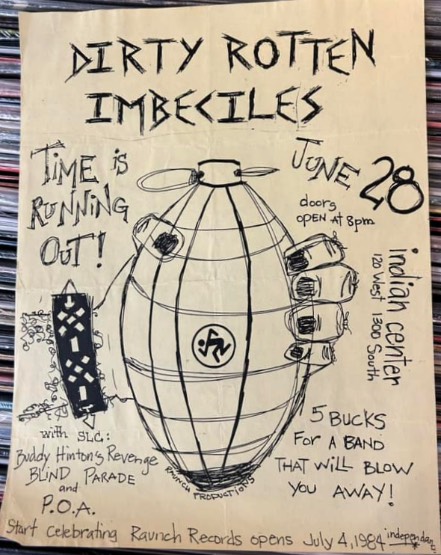 DIRTY ROTTEN
IMBECILES
TIME is
RUNNING
OUT!
JUNE 28
doors
OPEN At 8pm
indian center
120 West 1300 South
with SLC:
Buddy Hinton's Revenge
BLIND PARADE
and
P.O.A.
5 BUCKS
FOR A BAND
THAT WILL BLOW
YOU AWAY!
RAUNCH PRODUCTIONS
Start celebrating Raunch Records opens July 4, 1984